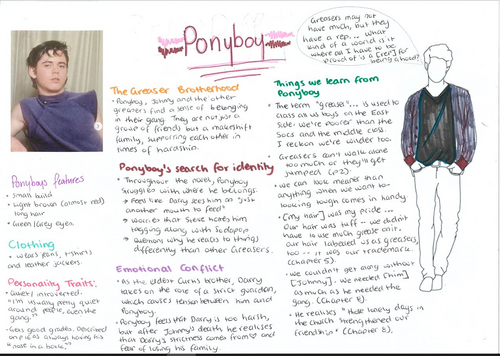 Ponyboy
Greasers may not
have much, but they
have a rep... what
kind of a world is it
where all I have to be
proud of is a
The Greaser Brotherhood
• Ponyboy, Johnny and the other
greasers find a sense of belonging
in their gang. They are not just a
group of friends but a makeshift
family, supporting each other in
times of hardship.
Ponyboy's search for identity
• Throughout the novel, Ponyboy
struggles with where he belongs.
• Feels like Darry sees him as "just
another mouth to feed"
• Worries that Steve hates him
tagging along with Sodapop
• Questions why he reacts to things
differently than other Greasers.
Emotional Conflict
• As the oldest Curtis brother, Darry
takes on the role of a strict guardian,
which causes tension between him and
Ponyboy.
• Ponyboy feels that Darry is too harsh,
but after Johnny's death he realises
that Darry's strictness comes from
fear of losing his family.
Ponyboys features
• Small build
• Light brown (almost red)
long hair
• Green/Grey eyes
Clothing
• Wears jeans, t-shirts
and leather jackets.
Personality Traits:
• Quiet/introverted.
"I'm usually pretty quiet
around people, even the
gang"
• Gets good grades. Described
as always having his
"nose in a book."
Things we learn from
Ponyboy
• The term "grease"... is used to
class all us boys on the East
Side. We're poorer than the
Socs and the middle class.
I reckon we're wilder too.
• Greasers can't walk alone
too much or they'll get
jumped (p2).
• We can look meaner than
anything when we want to-
looking tough comes in handy
• [My hair] was my pride...
Our hair was tuff - we didn't
have to use much grease on it.
Our hair labelled us as greasers,
too -- it was our trademark
(Chapter 5).
• We couldn't get along without
[Johnny]. We needed [him]
as much as he needed the
gang. (Chapter 8).
• He realises "Those lonely days in
the church strengthened our
friendship" (Chapter 8).